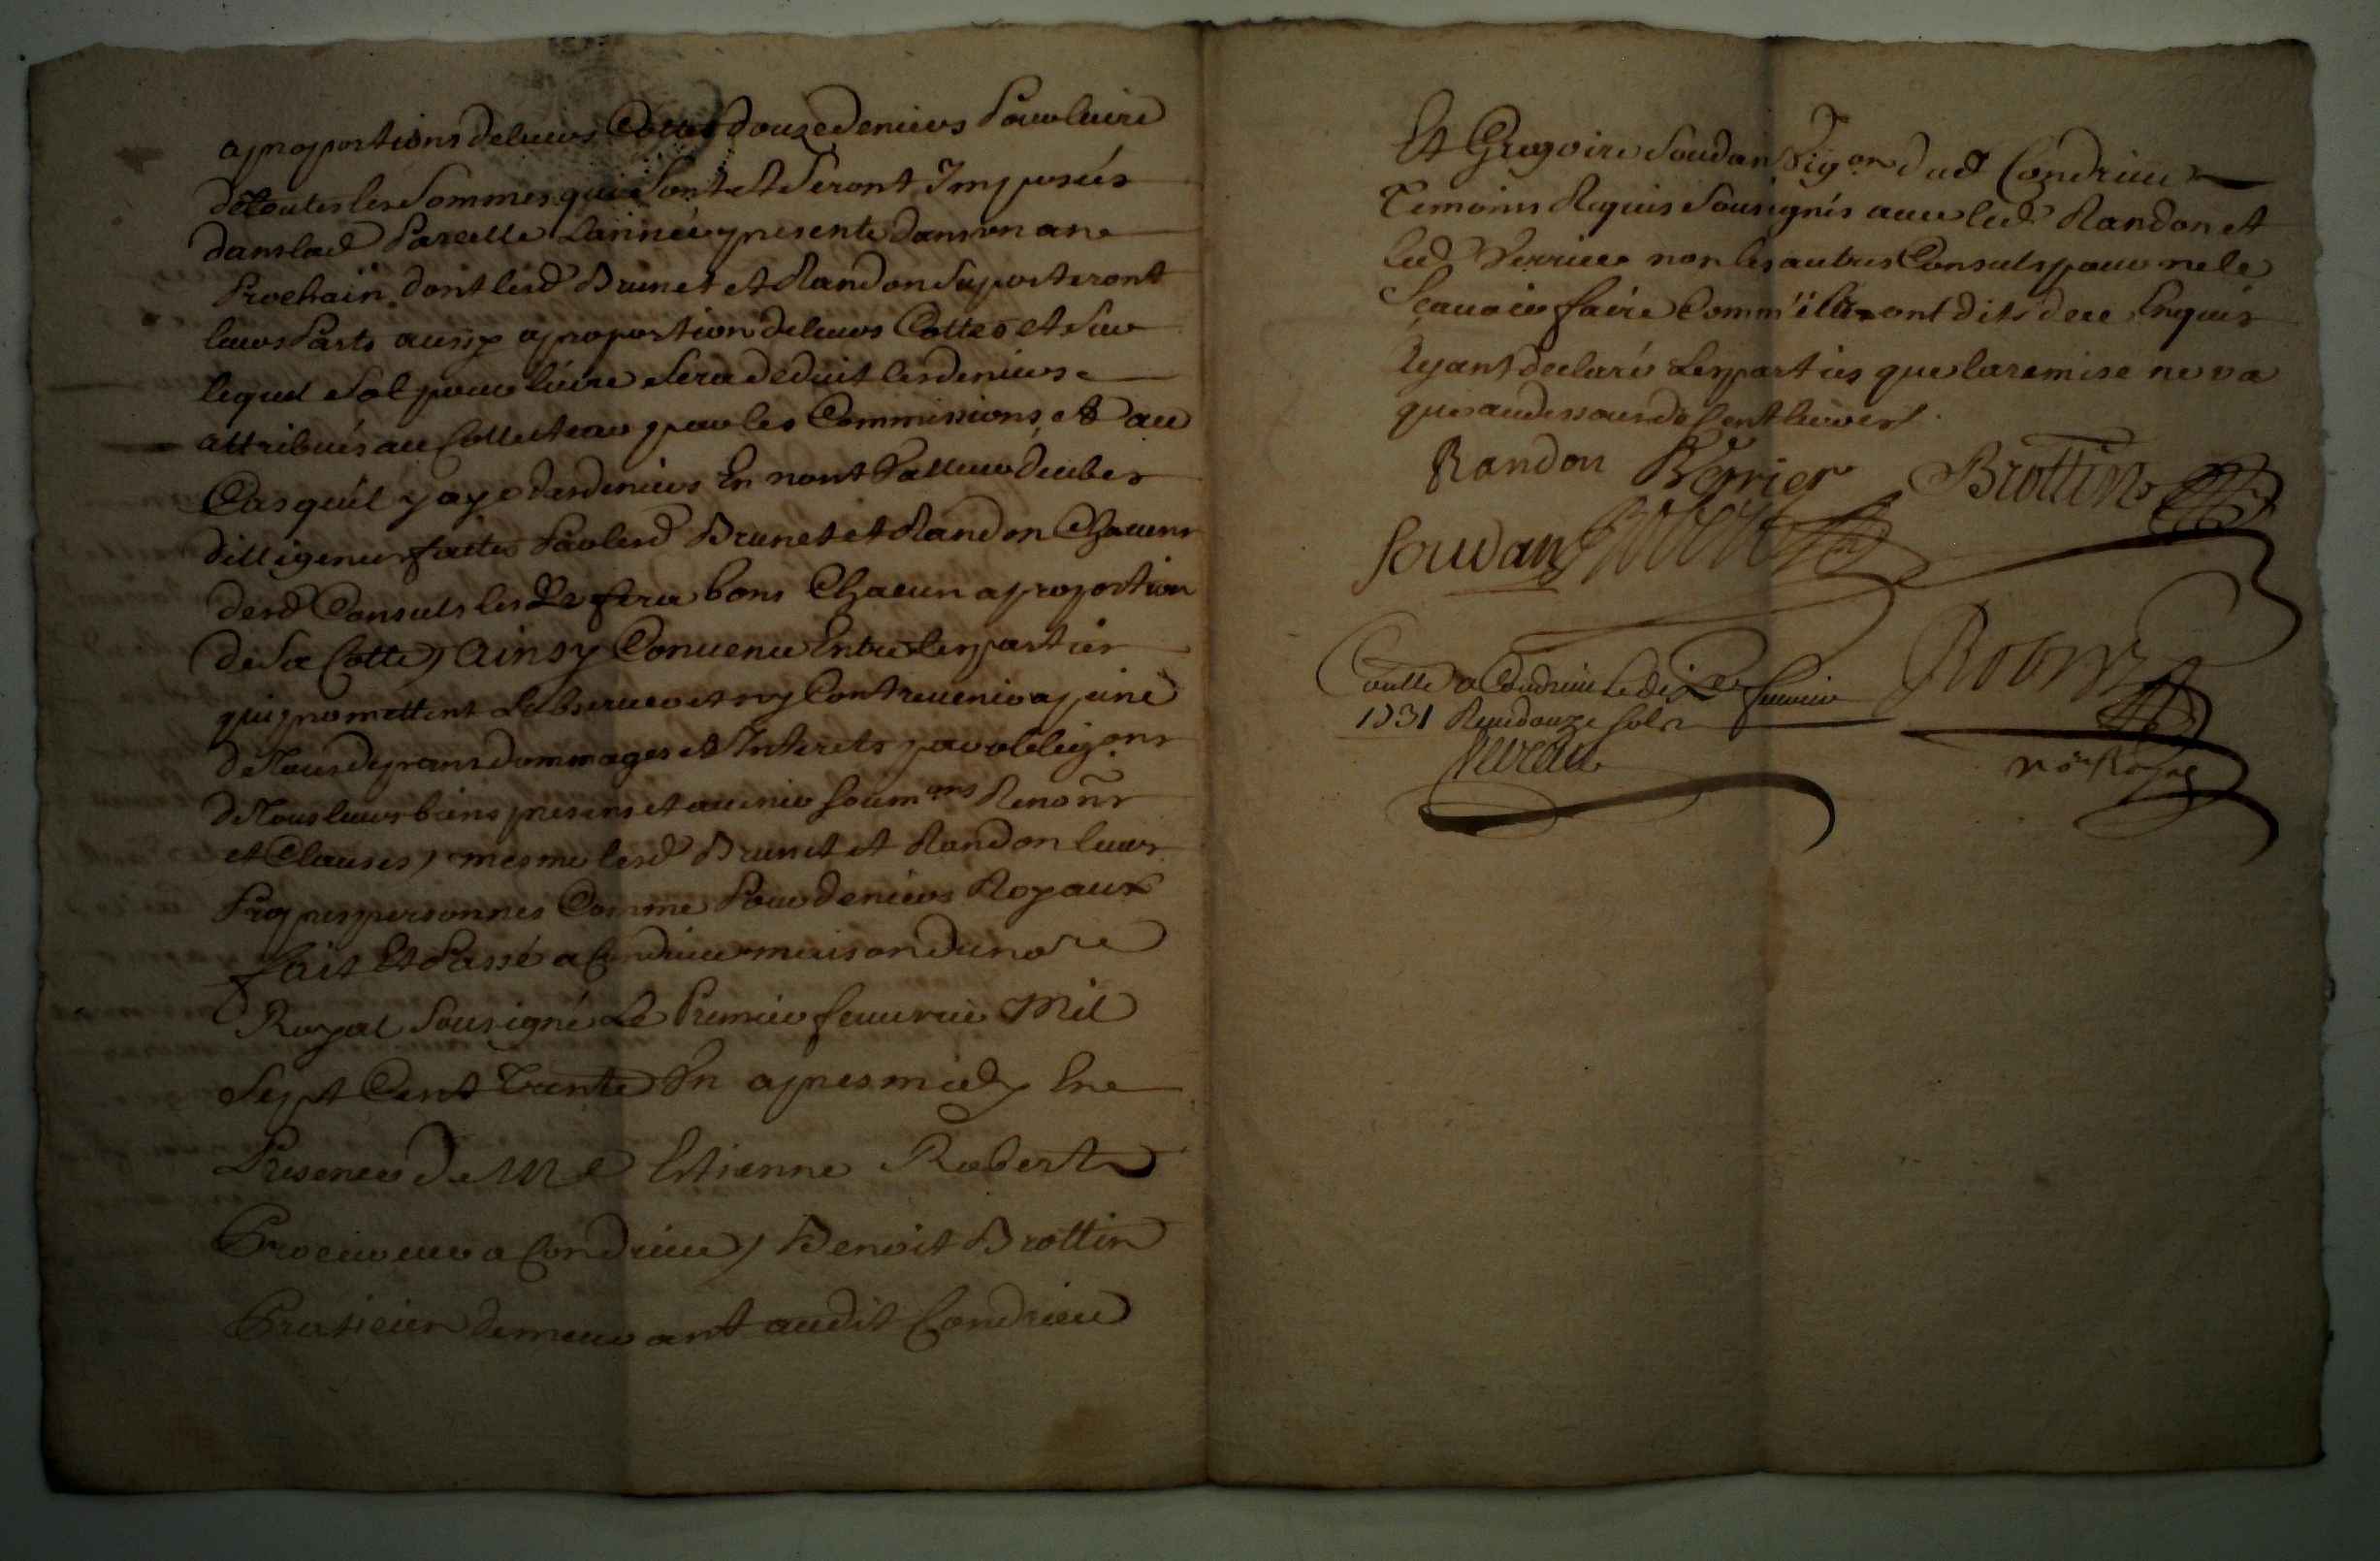 a proportions de leurs Cottes douze deniers Pour livre
de toutes les Sommes qui Sont et Seront Imposées
dans lad Parcelle Lannée presente dans un an
Prochain dont lesd Brunet et Randon Suporteront
leurs Parts aussy a proportion de leurs Cottes et Sur
lequel Sol pour livre Sera deduit les deniers
attribués au Collecteur par les Commissions, et au
Cas quil y aye des deniers En non Valleur deubes
dilligences faites Par lesd Brunet et Randon Chacuns
desd Consuls les Le fera bons Chacun a proportion
de Sa Cotte, Ainsy Convenu Entre les parties
qui promettent Lobserver et ny Contrevenir a peine
de Tous depans dommages et Interets par obligons
de Tous leurs biens presens et avenir Soumons Renons
et Clauses, mesme lesd Brunet et Randon leurs
Propres personnes Comme Pour deniers Royaux
fait Et Passé a Condrieu maison du nore
Royal Sousigné Le Premier fevvrier Mil
Sept Cent Trente Un apres midy En
Presence de Me Estienne Robert
Procureur a Condrieu, Benoit Brottin
Praticien demeurant audit Condrieu
Et Gregoire Soudan Vigon dud Condrieu
Temoins Requis Sousignés avec led Randon et
led Verrier non les autres Consuls pour ne le
Sçavoir faire Comm'ils ont dits de ce Enquis
Ayant declaré Les parties que la remise ne va
que au dessous de Cent livres.
Randon Verrier Brottin
Soudan Robert
Conllé a Condrieu le dix fevrier
1731 Reçu douze sols
Robert
nore Royal